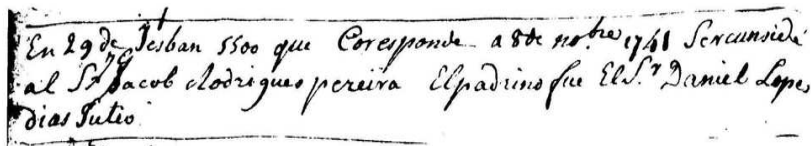 En 29 de Jesban 5500 que Coresponde a 8 de no.bre 1741 Sercunside
al S.r Jacob Rodrigues pereira El padrino fue El S.r Daniel Lopes
dias Tutio